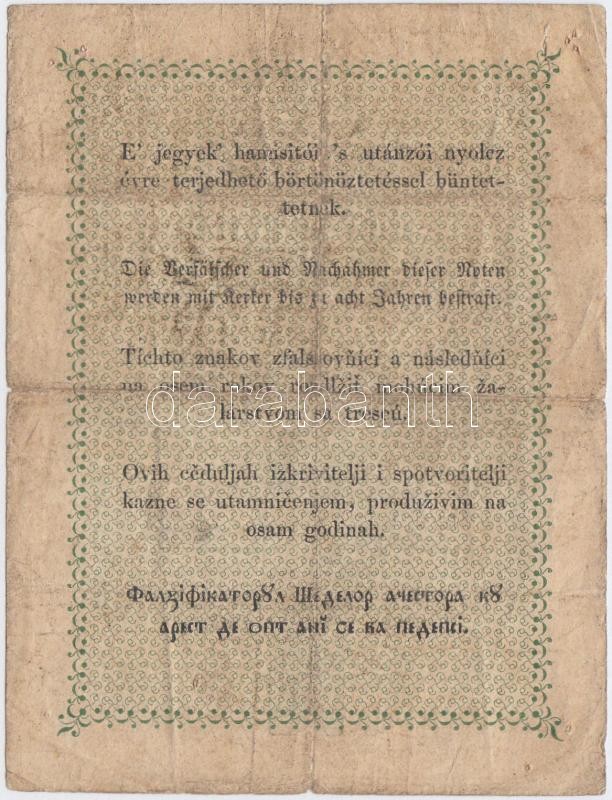 E' jegyek' hamisitói 's utánzói nyolcz
évre terjedhető börtönöztetéssel büntet-
tetnek.
Die Verfälscher und Nachahmer dieser Noten
werden mit Kerker bis zu acht Jahren bestraft.
Tichto znakov zfalšovňíci a následňíci
na osem rokov
žalárstvom sa trescú.
darabanth
Ovih cěduljah izkrivitelji i spotvoritelji
kazne se utamničenjem, produživim na
osam godinah.
Фалзіфікаторꙋл Шеделор ачестора кꙋ
арест де опт анĭ се ва педепсі.